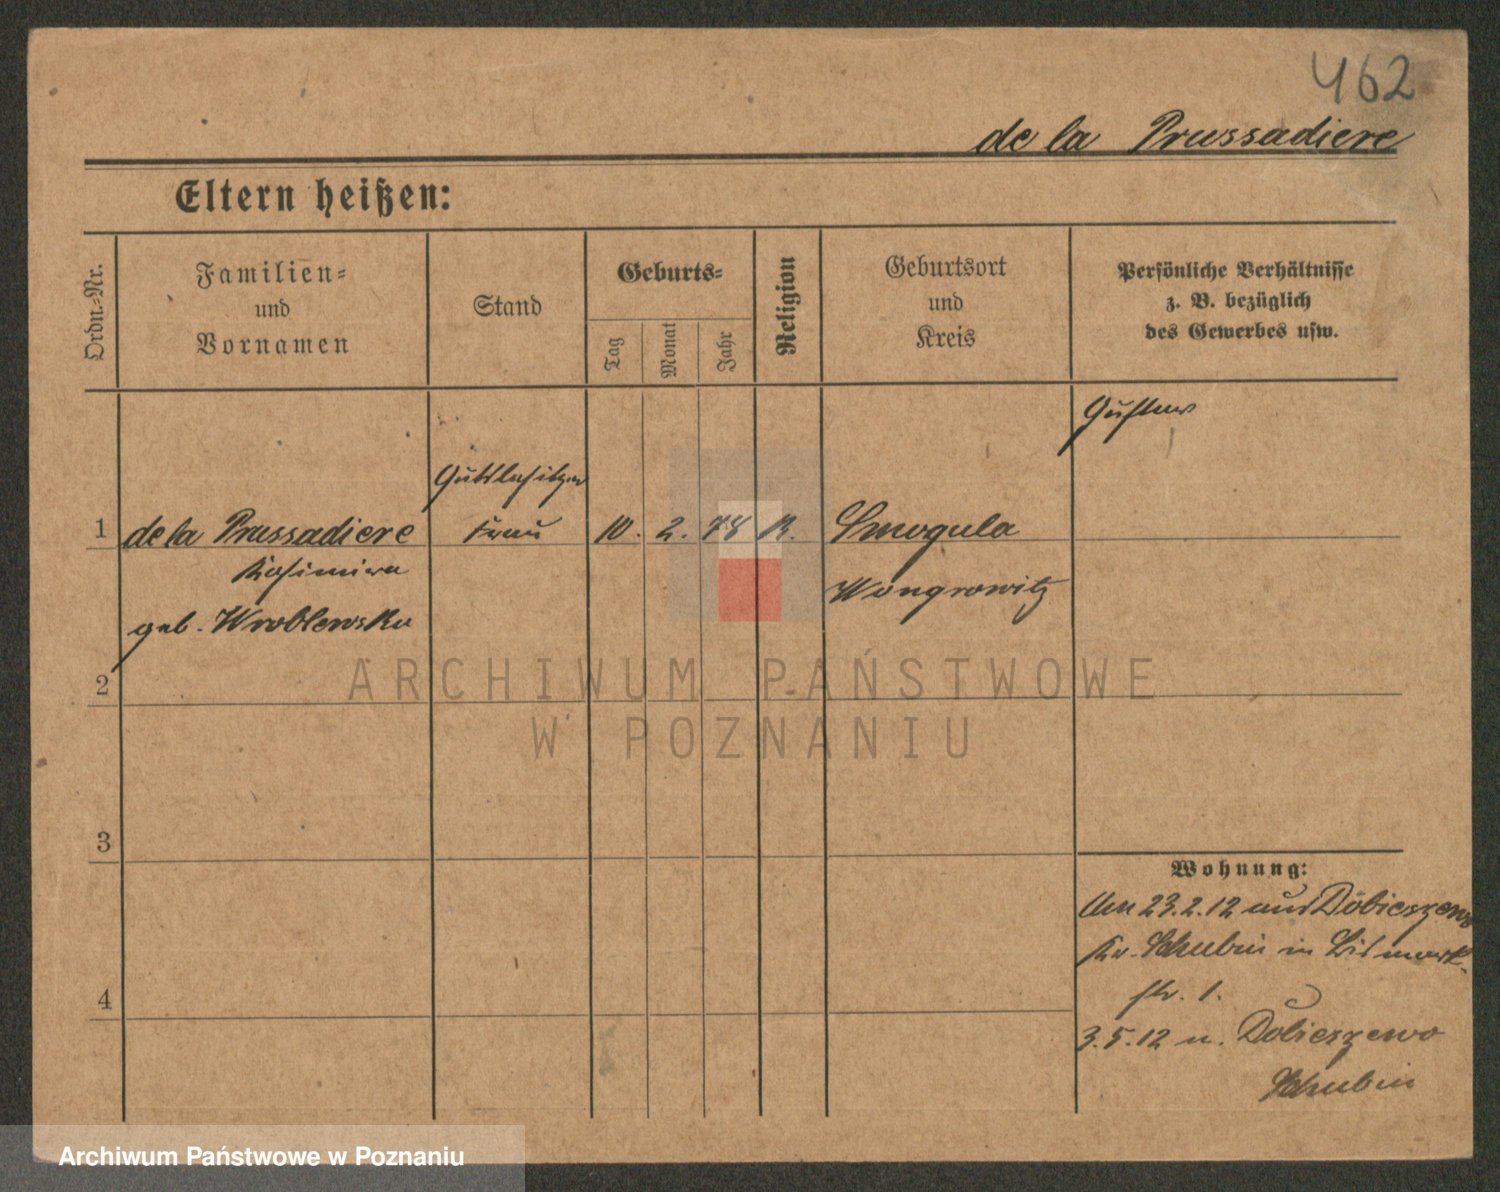 462
de la Prussadiere
Eltern heißen:
Ordn.-Nr.
Familien-
und
Vornamen
Stand
Geburts-
Tag
Monat
Jahr
Religion
Geburtsort
und
Kreis
Persönliche Verhältnisse
z. B. bezüglich
des Gewerbes usw.
Gustav
Gutsbesitzer
1 de la Prussadiere Frau 10. 2. 78 K. Smogula
Kasimira
Wongrowitz
geb. Wroblewska
2
3
Wohnung:
Am 23.2.12 aus Dobieszewo
Kr. Schubin in Bismark-
str. 1.
4
3.5.12 n. Dobieszewo
Schubin
ARCHIWUM PAŃSTWOWE
W POZNANIU
Archiwum Państwowe w Poznaniu